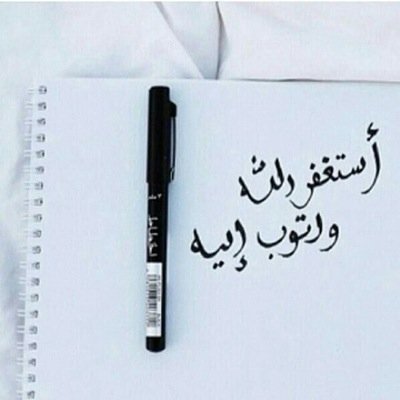 أستغفر الله
واتوب إليه